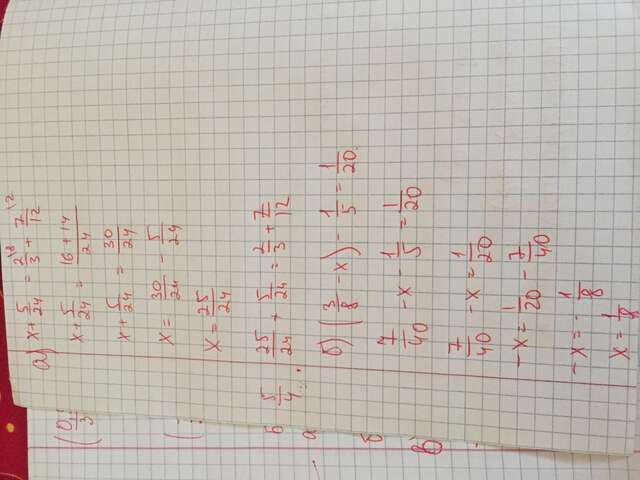 а) x + 5/24 = 2/3 \8 + 7/12 \2
x + 5/24 = (16 + 14)/24
x + 5/24 = 30/24
x = 30/24 - 5/24
x = 25/24
25/24 + 5/24 = 2/3 + 7/12
5/4
б) (3/8 - x) - 1/5 = 1/20
7/40 - x - 1/5 = 1/20
7/40 - x = 1/20
-x = 1/20 - 7/40
-x = - 1/8
x = 1/8
(0/3
б
а
б
в)